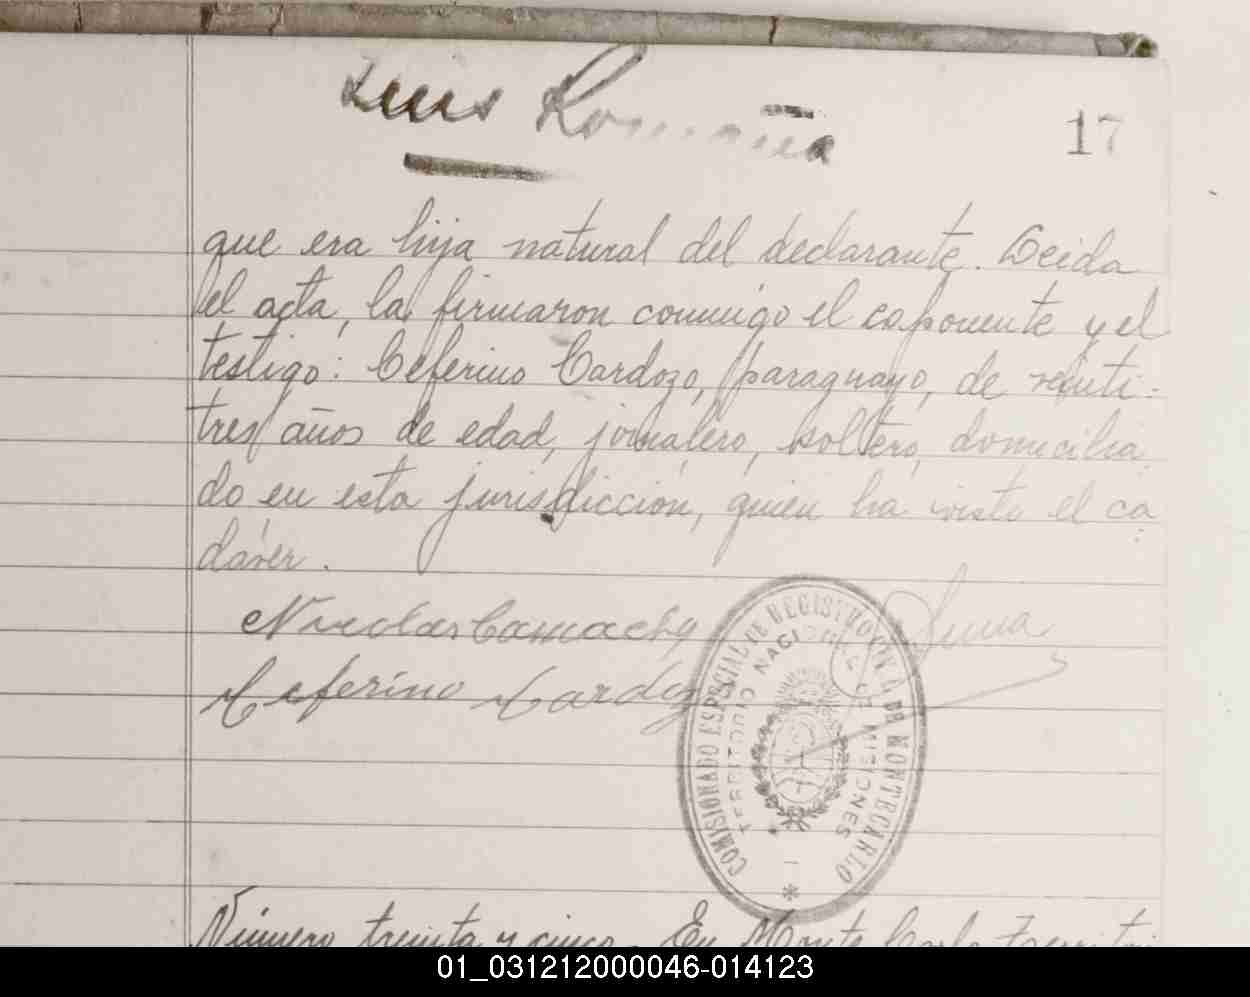 Luis Romaña
17
que era hija natural del declarante. Leida
el acta, la firmaron conmigo el esponente y el
testigo: Ceferino Cardozo, paraguayo, de veinti-
tres años de edad, jornalero, soltero, domicilia
do en esta jurisdicción, quien ha visto el ca
dáver.
Nicolas Camacho
Ceferino Cardozo
COMISIONADO ESPECIAL DE REGISTRO CIVIL DE MONTECARLO
TERRITORIO NACIONAL DE MISIONES
Número treinta y cinco. En Monte Carlo Territori
01_031212000046-014123